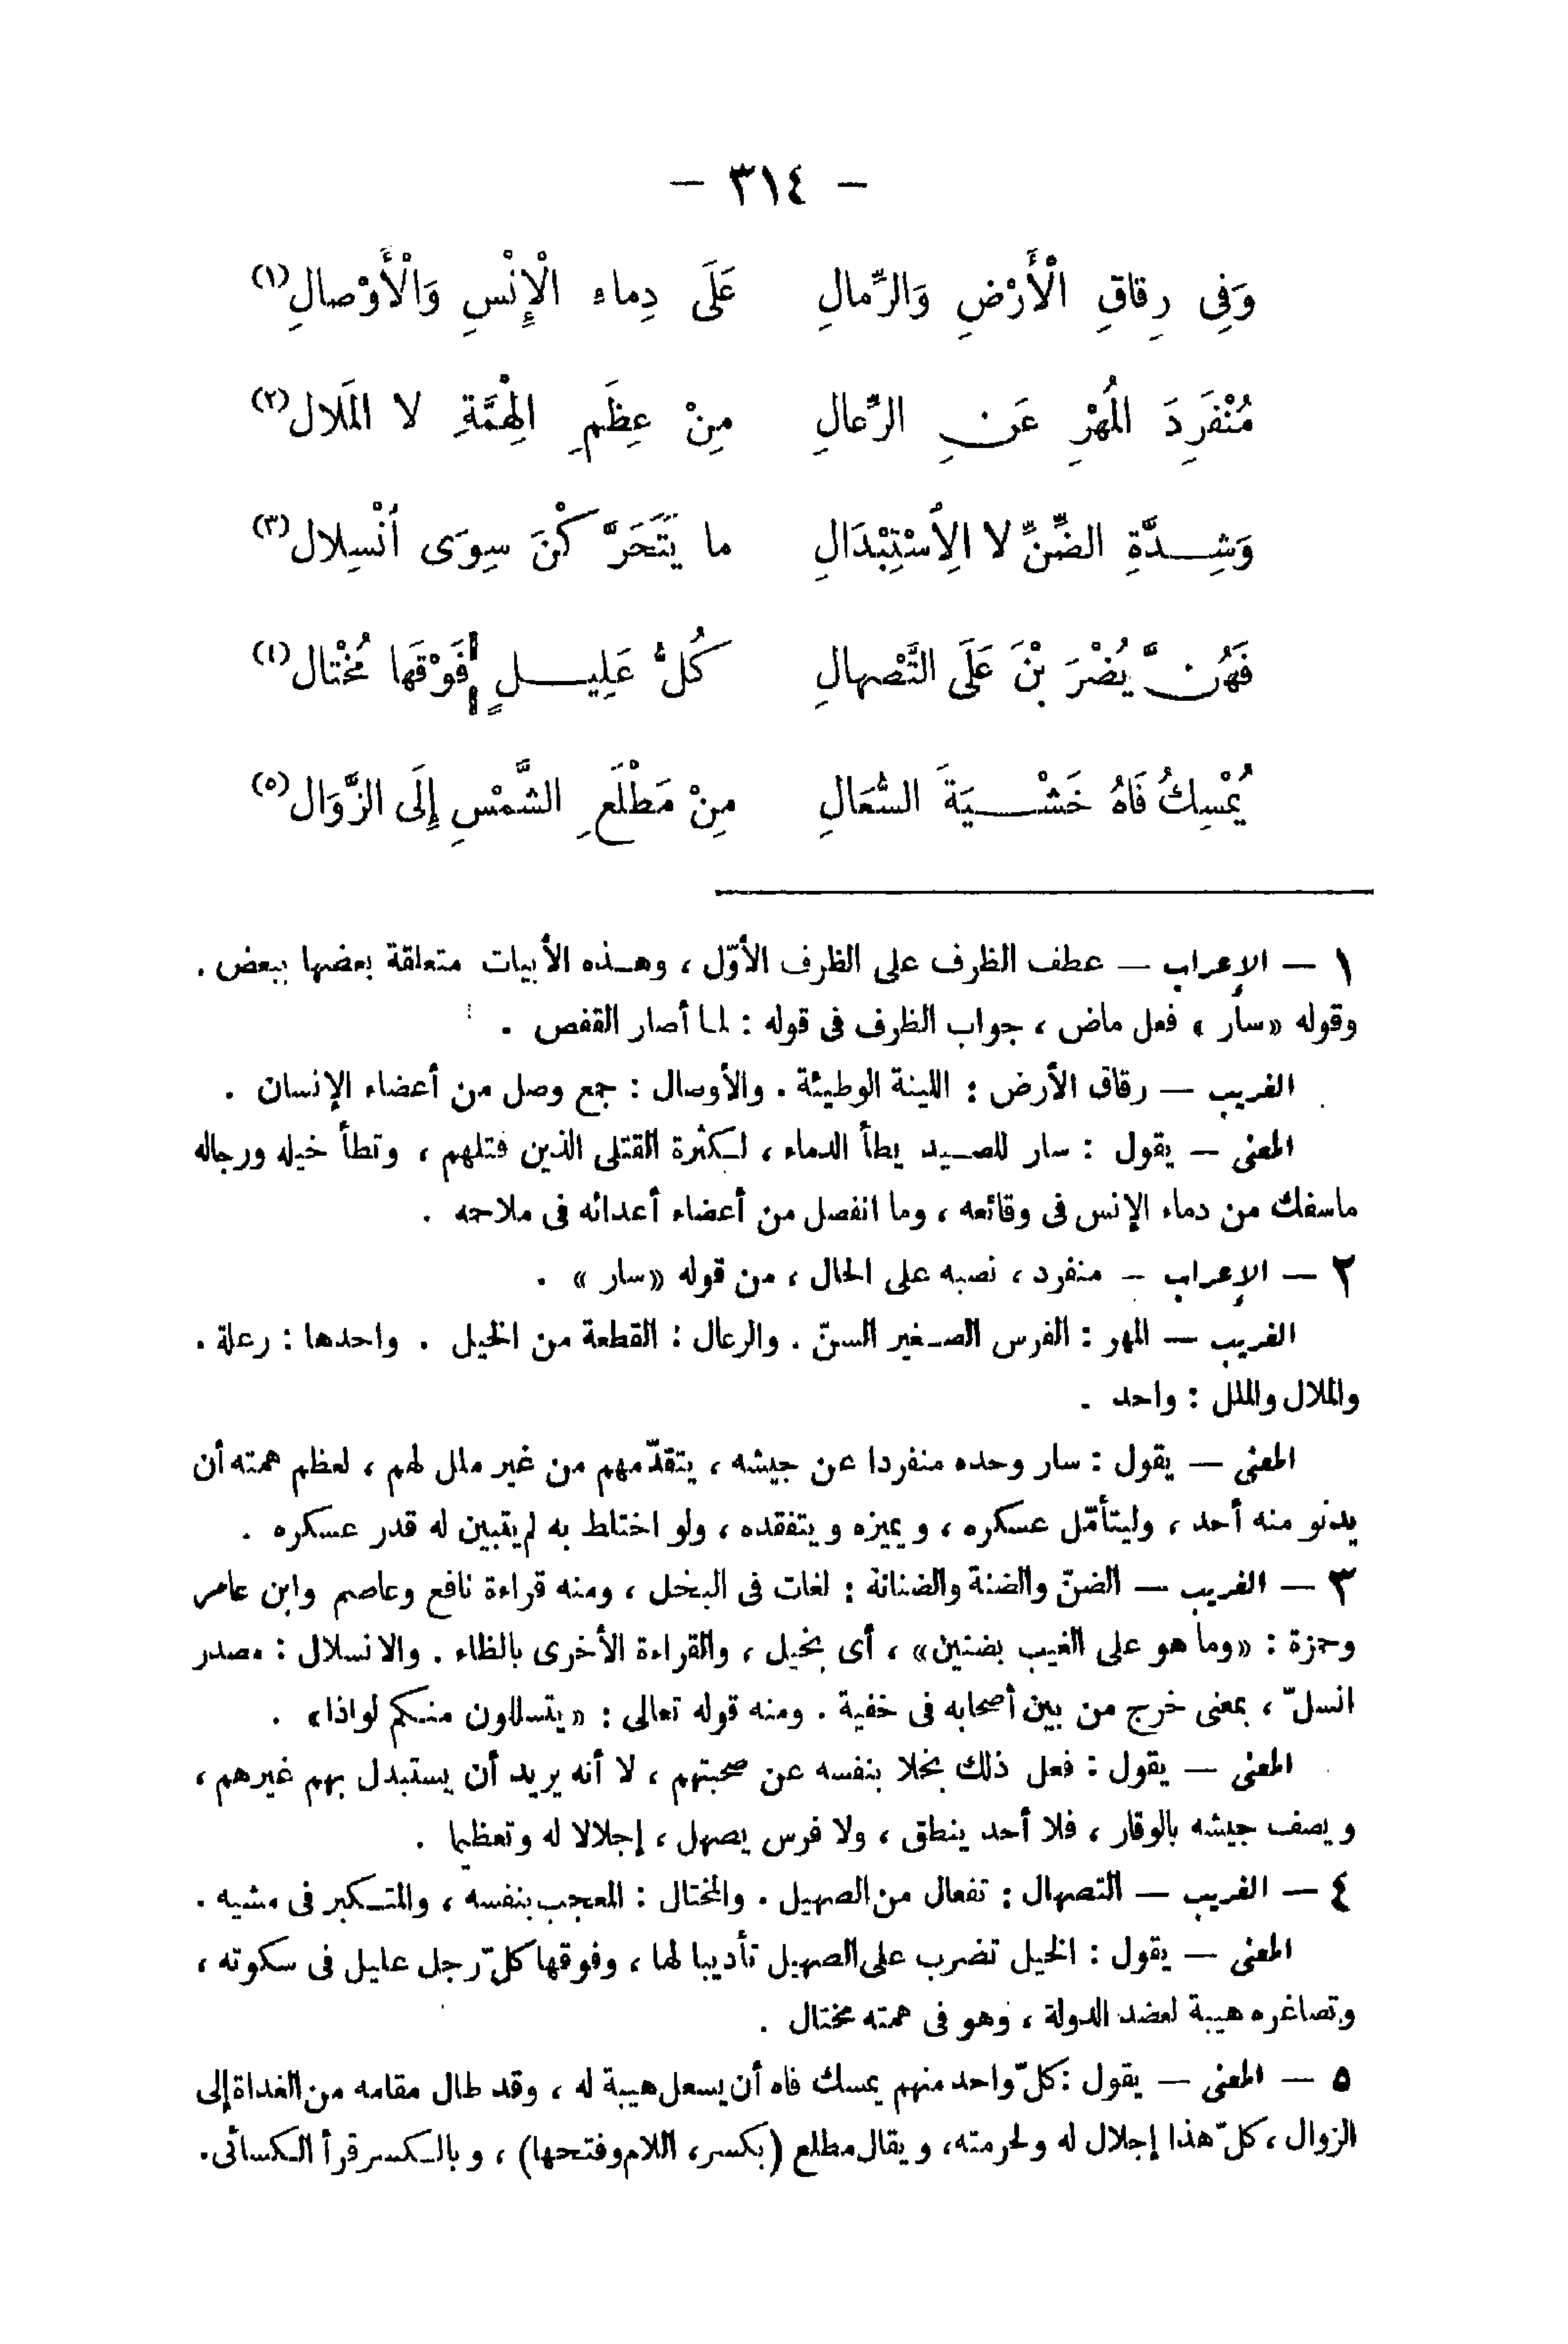 — ٣١٤ —
وَفِى رِقاقِ الْأَرْضِ وَالرِّمالِ عَلَى دِماءِ الْإِنْسِ وَالْأَوْصالِ (١)
مُنْفَرِدَ الْمُهْرِ عَنِ الرِّعالِ مِنْ عِظَمِ الْهِمَّةِ لا الْمَلال (٢)
وَشِدَّةِ الضِّنِّ لا الِاسْتِبْدَالِ ما يَتَحَرَّكْنَ سِوَى انْسِلال (٣)
فَهُنَّ يُضْرَبْنَ عَلَى التَّصْهالِ كُلُّ عَلِيلٍ فَوْقَها مُخْتال (٤)
يُمْسِكُ فَاهُ خَشْيَةَ السُّعَالِ مِنْ مَطْلَعِ الشَّمْسِ إِلَى الزَّوَال (٥)
١ — الإعراب — عطف الظرف على الظرف الأوّل ، وهذه الأبيات متعلقة بعضها ببعض .
وقوله «سار» فعل ماض ، جواب الظرف فى قوله : لما أصار القفص .
الغريب — رقاق الأرض : اللينة الوطيئة . والأوصال : جمع وصل من أعضاء الإنسان .
المعنى — يقول : سار للصيد يطأ الدماء ، لكثرة القتلى الذين قتلهم ، وتطأ خيله ورجاله
ماسفك من دماء الإنس فى وقائعه ، وما انفصل من أعضاء أعدائه فى ملاحمه .
٢ — الإعراب — منفرد ، نصبه على الحال ، من قوله «سار» .
الغريب — المهر : الفرس الصغير السنّ . والرعال : القطعة من الخيل . واحدها : رعلة .
والملال والملل : واحد .
المعنى — يقول : سار وحده منفردا عن جيشه ، يتقدّمهم من غير ملل لهم ، لعظم همته أن
يدنو منه أحد ، وليتأمّل عسكره ، ويميزه ويتفقده ، ولو اختلط به لم يتبين له قدر عسكره .
٣ — الغريب — الضنّ والضنة والضنانة : لغات فى البخل ، ومنه قراءة نافع وعاصم وابن عامر
وحمزة : «وما هو على الغيب بضنين» ، أى بخيل ، والقراءة الأخرى بالظاء . والانسلال : مصدر
انسلّ ، بمعنى خرج من بين أصحابه فى خفية . ومنه قوله تعالى : «يتسللون منكم لواذا» .
المعنى — يقول : فعل ذلك بخلا بنفسه عن صحبتهم ، لا أنه يريد أن يستبدل بهم غيرهم ،
ويصف جيشه بالوقار ، فلا أحد ينطق ، ولا فرس يصهل ، إجلالا له وتعظيما .
٤ — الغريب — التصهال : تفعال من الصهيل . والمختال : المعجب بنفسه ، والمتكبر فى مشيه .
المعنى — يقول : الخيل تضرب على الصهيل تأديبا لها ، وفوقها كلّ رجل عليل فى سكوته ،
وتصاغره هيبة لعضد الدولة ، وهو فى همته مختال .
٥ — المعنى — يقول : كلّ واحد منهم يمسك فاه أن يسعل هيبة له ، وقد طال مقامه من الغداة إلى
الزوال ، كلّ هذا إجلال له ولحرمته ، ويقال مطلع (بكسر، اللام وفتحها) ، وبالكسر قرأ الكسائى .